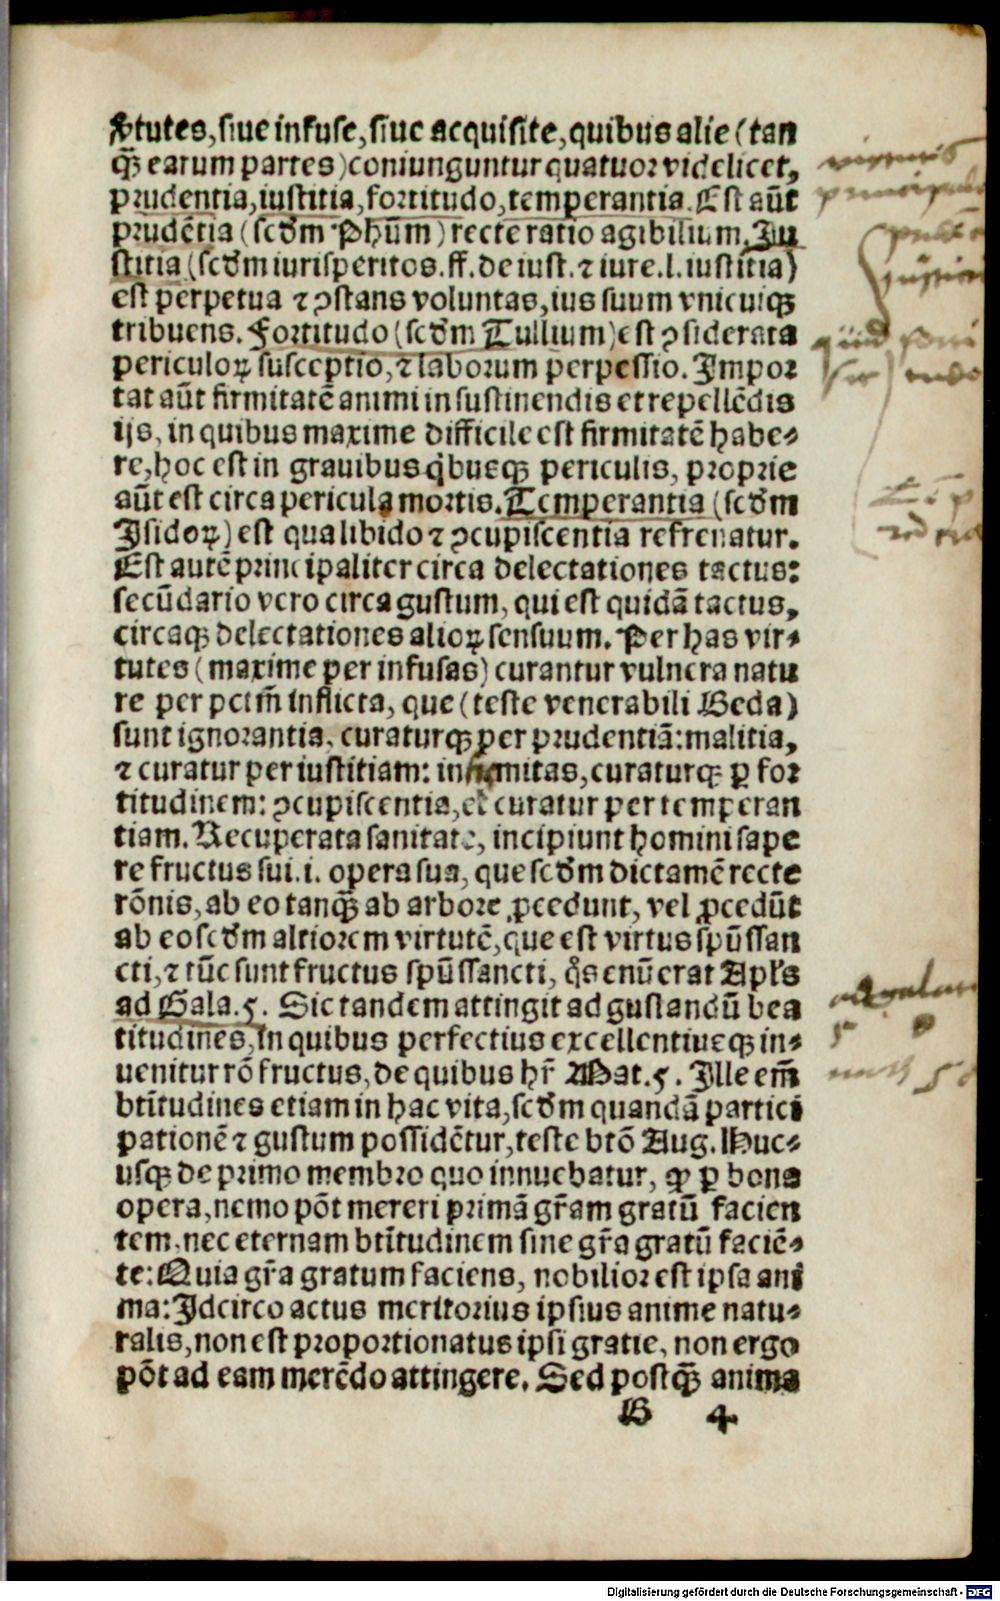 v̄tutes, siue infuse, siue acquisite, quibus alie (tan
q̄ꝫ earum partes) coniunguntur quatuor videlicet,
prudentia, iustitia, fortitudo, temperantia. Est aūt
prudētia (scd̄m Ph̄um) recte ratio agibilium. Iu
stitia (scd̄m iurisperitos. ff. de iust. ⁊ iure. l. iustitia)
est perpetua ⁊ ꝯstans voluntas, ius suum vnicuiqꝫ
tribuens. Fortitudo (scd̄m Tullium) est ꝯsiderata
periculoꝝ susceptio, ⁊ laborum perpessio. Impor
tat aūt firmitatē animi in sustinendis et repellēdis
ijs, in quibus maxime difficile est firmitatē habe-
re, hoc est in grauibus qͥbuscqꝫ periculis, proprie
aūt est circa pericula mortis. Temperantia (scd̄m
Isidoꝝ) est qua libido ⁊ ꝯcupiscentia refrenatur.
Est autē principaliter circa delectationes tactus:
secūdario vero circa gustum, qui est quidā tactus,
circaqꝫ delectationes alioꝝ sensuum. Per has vir-
tutes (maxime per infusas) curantur vulnera natu
re per pctm̄ inflicta, que (teste venerabili Beda)
sunt ignorantia, curaturqꝫ per prudentiā: malitia,
⁊ curatur per iustitiam: infirmitas, curaturqꝫ ꝑ for
titudinem: ꝯcupiscentia, et curatur per temperan
tiam. Recuperata sanitate, incipiunt homini sape
re fructus sui. i. opera sua, que scd̄m dictamē recte
rōnis, ab eo tanq̄ꝫ ab arbore ꝓcedunt, vel ꝓcedūt
ab eo scd̄m altiorem virtutē, que est virtus spūssan
cti, ⁊ tūc sunt fructus spūssancti, q̄s enūerat Apl's
ad Gala. 5. Sic tandem attingit ad gustandū bea
titudines, in quibus perfectius excellentiusqꝫ in-
uenitur rō fructus, de quibus hr̄ Mat. 5. Ille em̄
btītudines etiam in hac vita, scd̄m quandā partici
pationē ⁊ gustum possidētur, teste btō Aug. Huc-
usqꝫ de primo membro quo innuebatur, ꝙ ꝑ bona
opera, nemo pōt mereri primā gr̄am gratū facien
tem, nec eternam btītudinem sine gr̄a gratū faciē-
te: Quia gr̄a gratum faciens, nobilior est ipsa ani
ma: Idcirco actus meritorius ipsius anime natu-
ralis, non est proportionatus ipsi gratie, non ergo
pōt ad eam merēdo attingere. Sed postq̄ꝫ anima
B 4
5
5
Digitalisierung gefördert durch die Deutsche Forschungsgemeinschaft - DFG